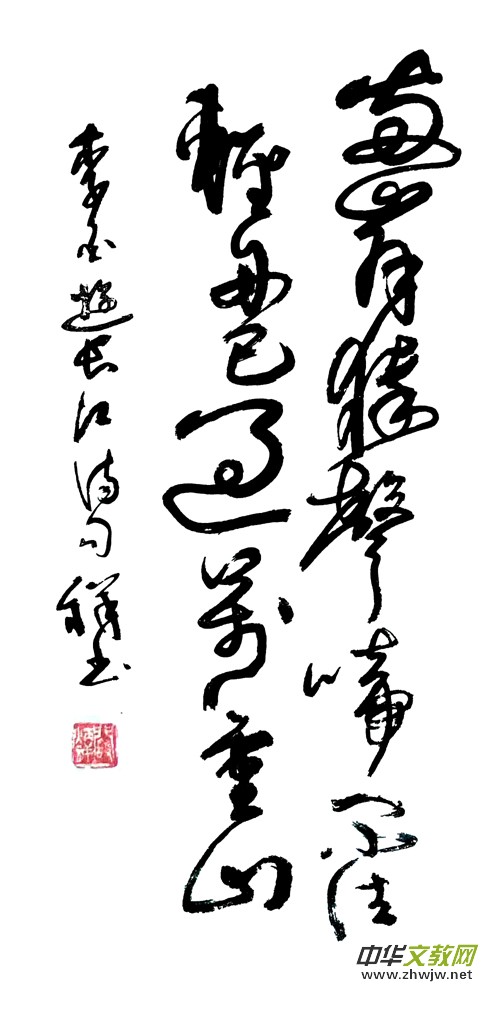 兩岸猿聲啼不住
輕舟已過萬重山
李白遊长江诗句 祥书
中华文教网
www.zhwjw.net